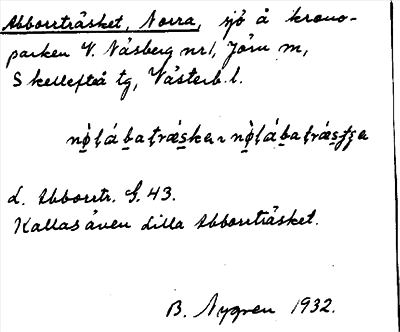 Abborrträsket, Norra, sjö å krono-
parken V. Näsberg nr 1, Jörn sn,
Skellefteå tg, Västerb. l.
nø̀ḷába ṭrǽske ~ nø̀ḷábaṭrǽsʈʂe
L. Abborrtr. G. 43.
Kallas även Lilla Abborrträsket.
B. Nygren 1932.